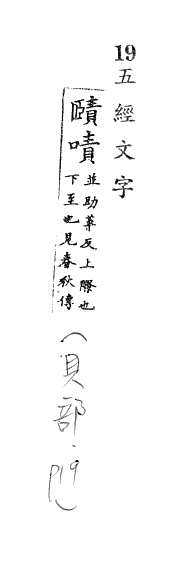 19
五經文字
賾嘖
並助革反上際也
下至也見春秋傳
(貝部.P19)